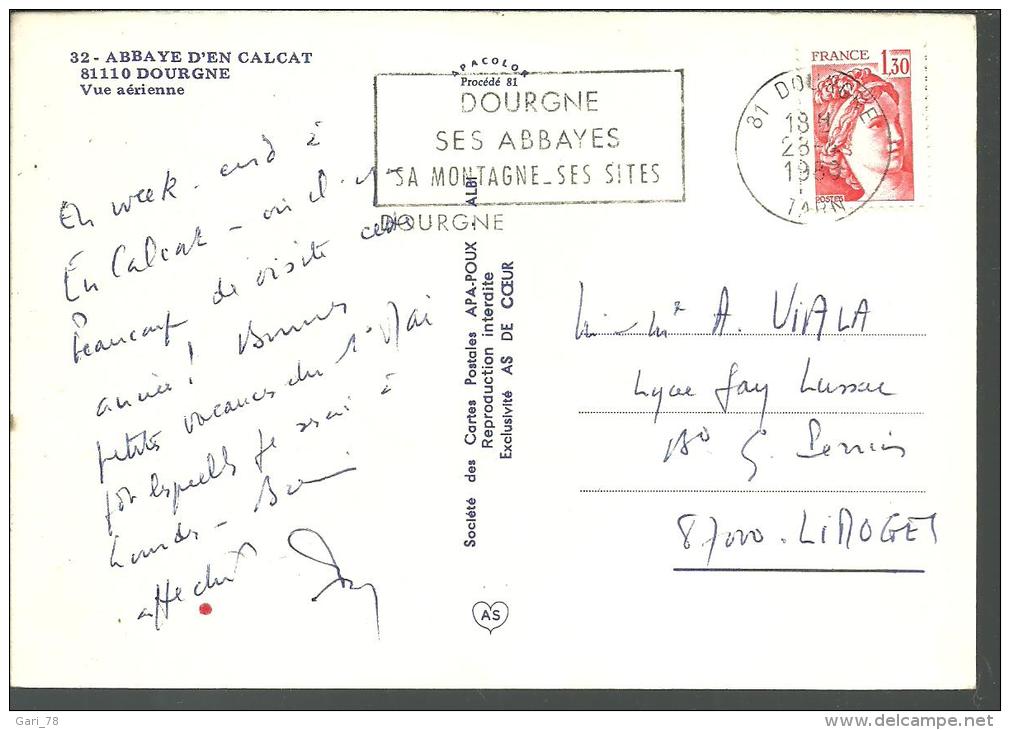 32 - ABBAYE D'EN CALCAT
81110 DOURGNE
Vue aérienne
APACOLOR
Procédé 81
DOURGNE
SES ABBAYES
SA MONTAGNE_SES SITES
DOURGNE
81 DOURGNE
18H
1983
TARN
FRANCE
1,30
POSTES
En week-end à
En Calcat - où il y a
beaucoup de visite cette
année! Bonnes
petites vacances du 1er Mai
pour lesquelles je serai à
Lourdes - Bien
affect
Société des Cartes Postales APA-POUX - ALBI
Reproduction interdite
Exclusivité AS DE CŒUR
AS
A. VIALA
Lycée Gay Lussac
Bd G. Perrin
87000. LIMOGES
Gari_78
www.delcampe.net